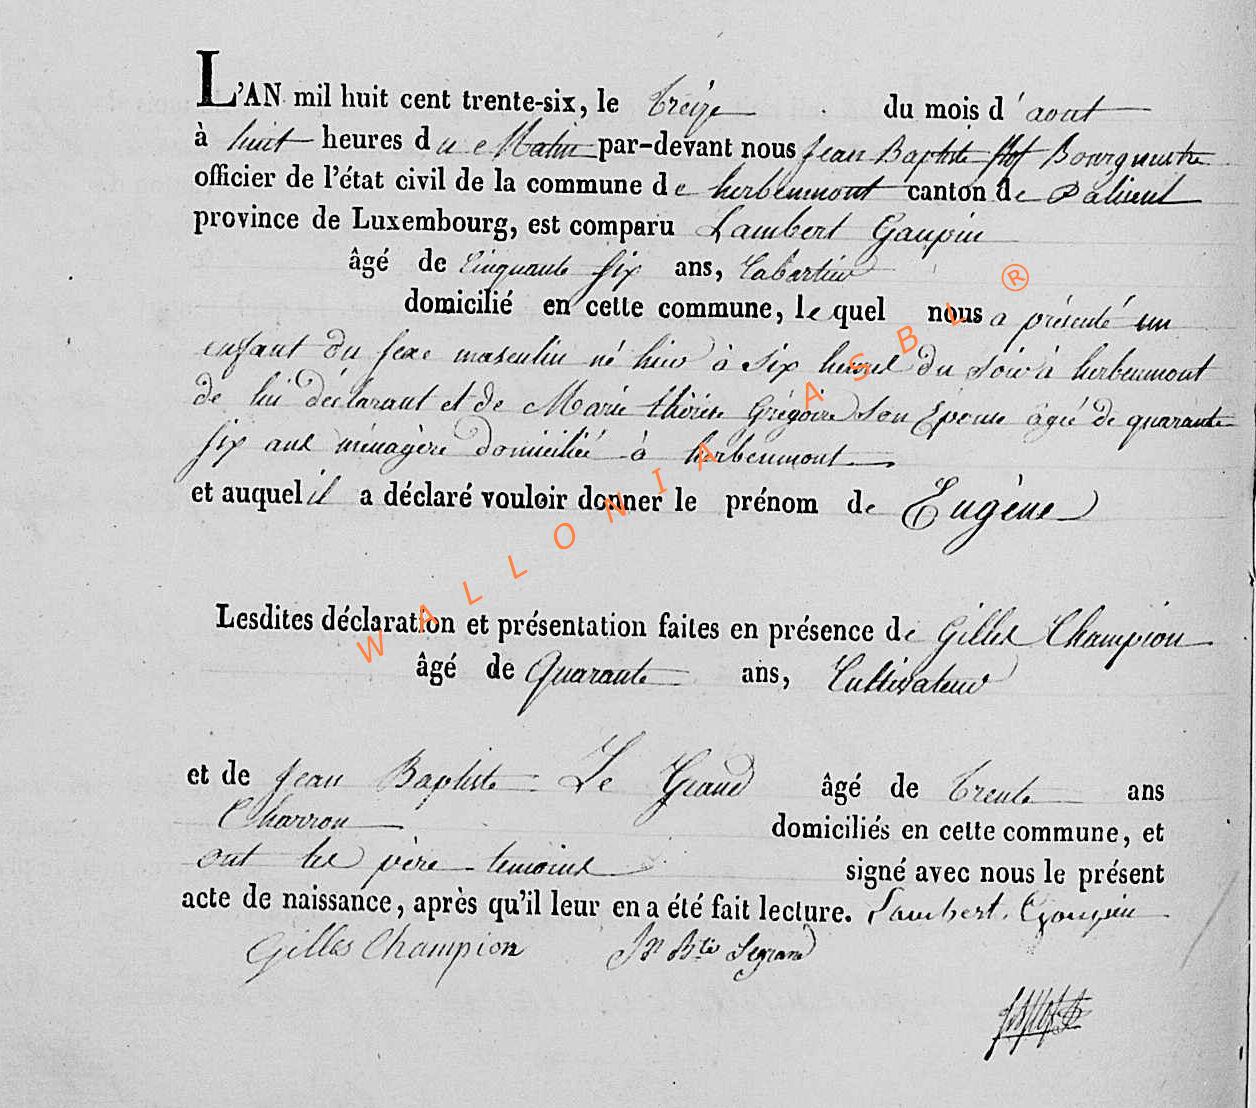 L'AN mil huit cent trente-six, le treize du mois d'aout
à huit heures du Matin par-devant nous Jean Baptiste Bourgmestre
officier de l'état civil de la commune de herbeumont canton de Paliseul
province de Luxembourg, est comparu Lambert Gaupin
âgé de Cinquante Six ans, Cabartier
domicilié en cette commune, le quel nous a présenté un
enfant du sexe masculin né hier à six heures du soir à herbeumont
de lui déclarant et de Marie thérèse Grégoire Son Epouse âgée de quarante
Six ans ménagère domiciliée à herbeumont
et auquel il a déclaré vouloir donner le prénom de Eugène
Lesdites déclaration et présentation faites en présence de Gilles Champion
âgé de Quarante ans, Cultivateur
et de Jean Baptiste Le Grand âgé de trente ans
Charron domiciliés en cette commune, et
ont les père temoins signé avec nous le présent
acte de naissance, après qu'il leur en a été fait lecture. Lambert Gaupin
Gilles Champion Jn Bte Legrand
WALLONIA ASBL ®